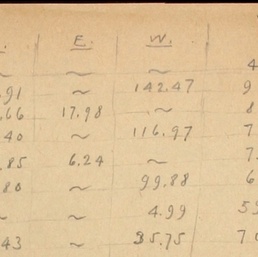 . E. W.
~ ~ ~ 4
.91 ~ 142.47 9
.66 17.98 ~ 8
.40 ~ 116.97 7
.85 6.24 ~ 7.
.80 ~ 99.88 6
~ ~ 4.99 59
.43 ~ 35.75 70